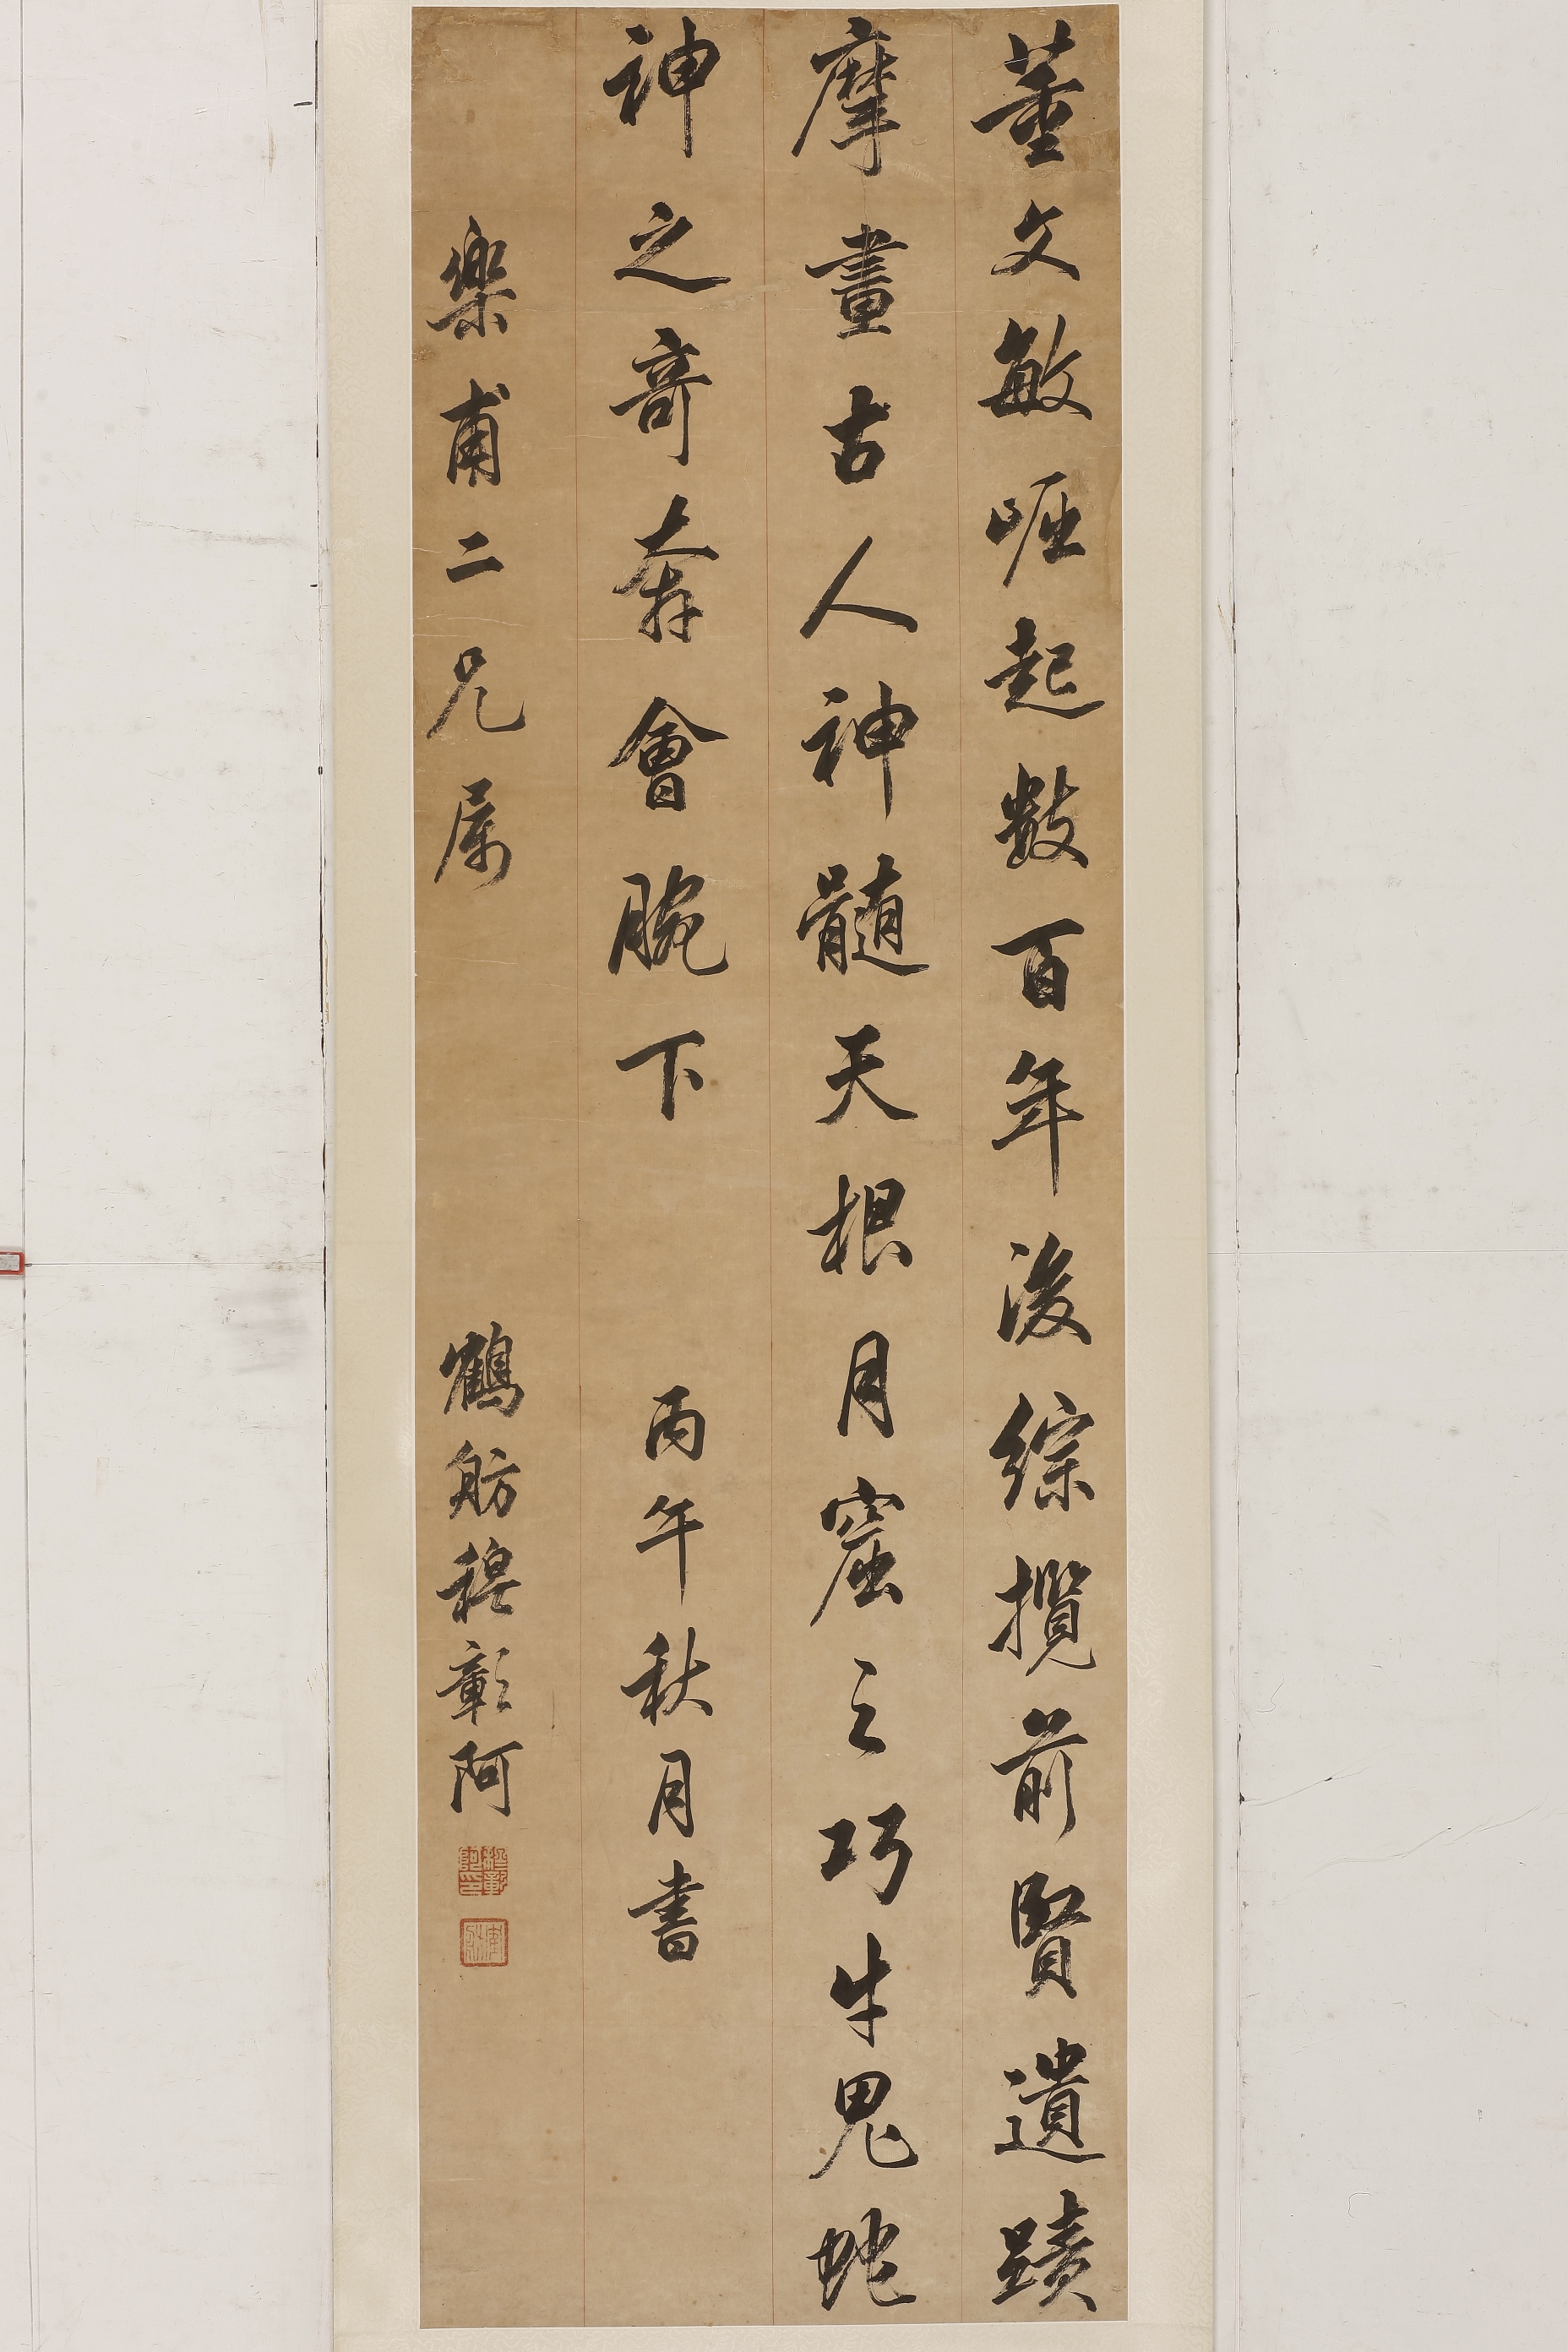 董文敏崛起數百年後綜攬前賢遺蹟
摩畫古人神髓天根月窟之巧牛鬼蛇
神之奇奔會腕下
丙午秋月書
樂甫二兄属
鶴舫穆彰阿
穆彰阿印